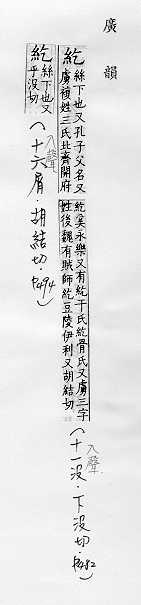 廣韻
紇 絲下也又孔子父名又
虜複姓三氏北齊開府
紇奚永樂又有紇干氏紇骨氏又虜三字
姓後魏有賊帥紇豆陵伊利又胡結切
(入聲 十一沒·下沒切·P482)
紇 絲下也又
乎沒切
(入聲 十六屑·胡結切·P494)